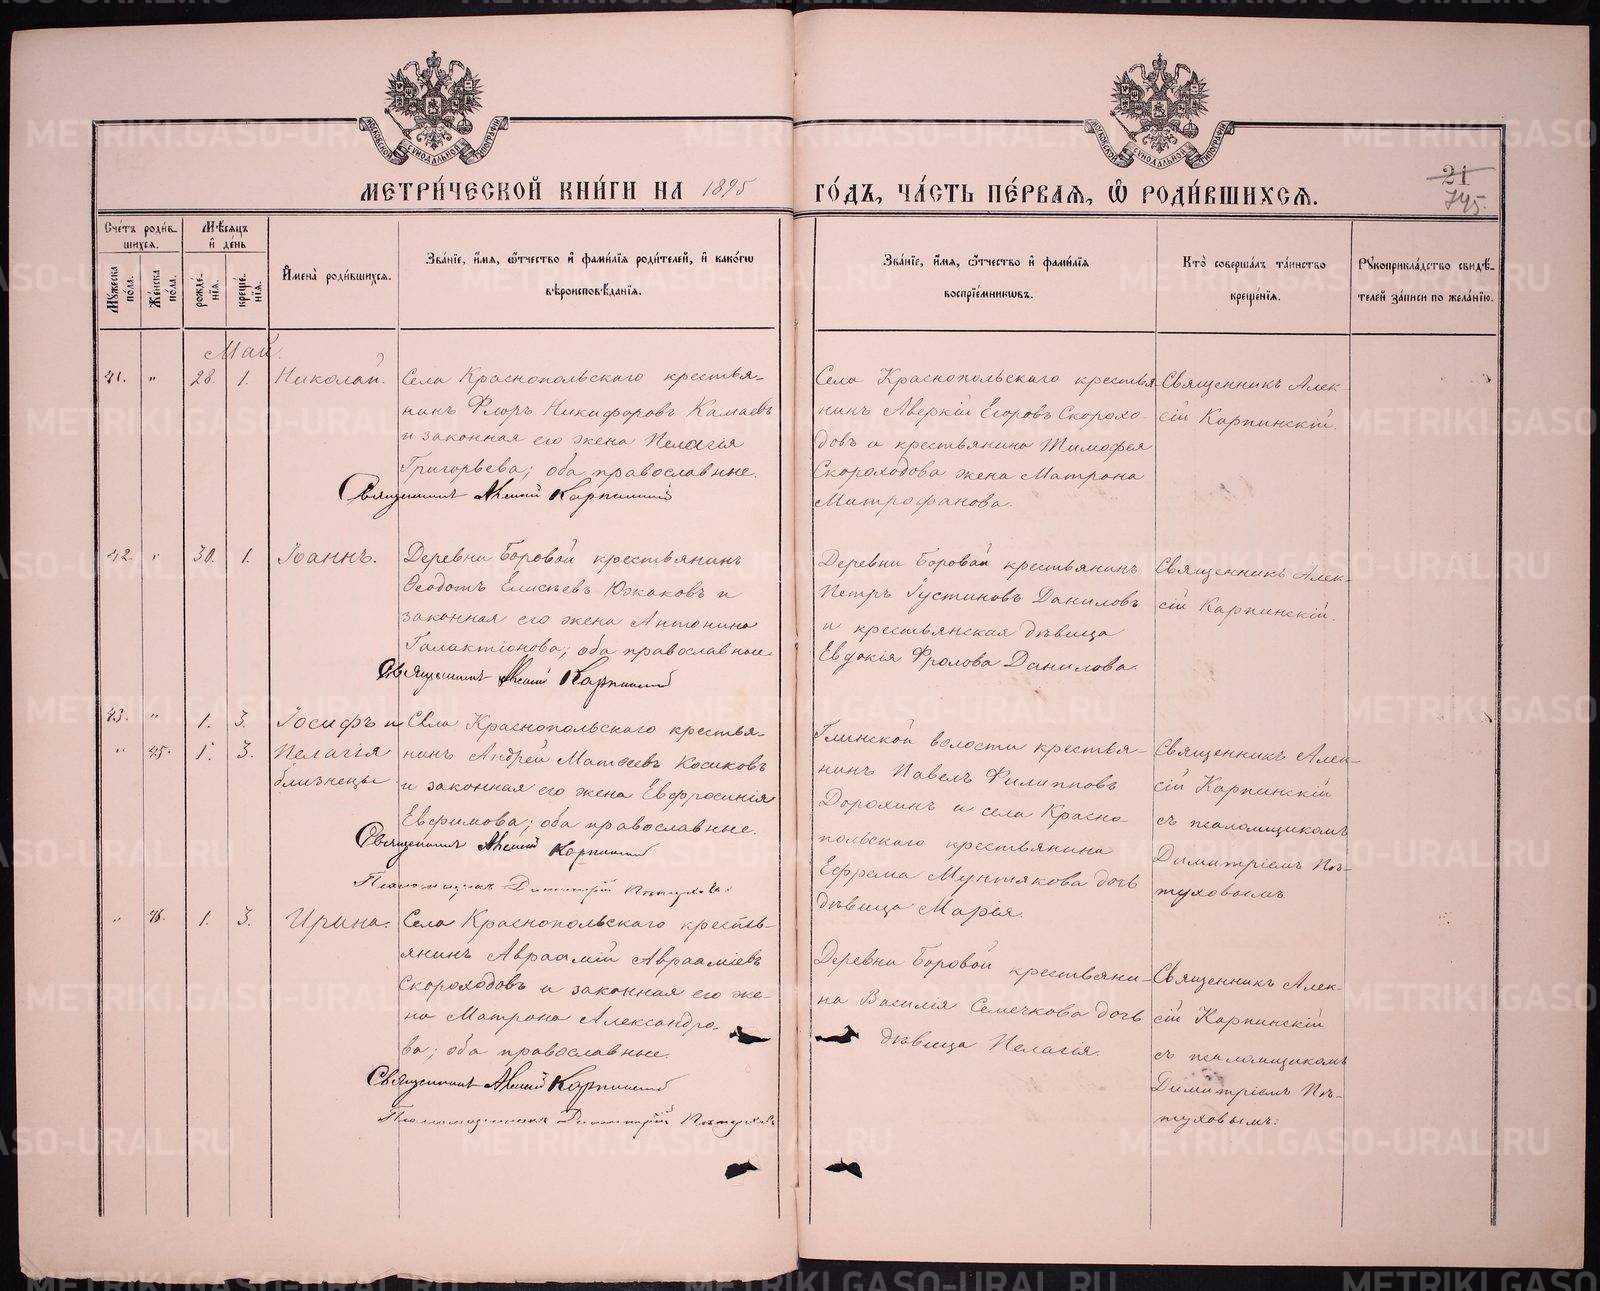 МОСКОВСКОЙ СѴНОДАЛЬНОЙ ТИПОГРАФІИ
МОСКОВСКОЙ СѴНОДАЛЬНОЙ ТИПОГРАФІИ
МЕТРИ́ЧЕСКОЙ КНИ́ГИ НА 1895
ГО́ДЪ, ЧА́СТЬ ПЕ́РВАѦ, Ѡ҆ РОДИ́ВШИХСѦ.
21
745.
Сче́тъ роди́в-
шихсѧ.
Мꙋ́жеска по́ла.
Же́нска по́ла.
Мѣ́сѧцъ
и҆ де́нь
рожде́-
нїѧ.
креще́-
нїѧ.
И҆мена̀ роди́вшихсѧ.
Зва́нїе, и҆́мѧ, ѻ҆́тчество и҆ фами́лїѧ роди́телей, и҆ како́гѡ
вѣроисповѣ́данїѧ.
Зва́нїе, и҆́мѧ, ѻ҆́тчество и҆ фами́лїѧ
воспрїе́мникѡвъ.
Кто̀ соверша́лъ та́инство
креще́нїѧ.
Рꙋкоприкла́дство свидѣ́-
телей за́писи по жела́нїю.
Май.
41. " 28. 1. Николай.
Села Краснопольскаго крестья-
нинъ Флоръ Никифоровъ Камаевъ
и законная его жена Пелагія
Григорьева; оба православные.
Священникъ Алексій Карпинскій
Села Краснопольскаго крестья-
нинъ Аверкій Егоровъ Скорохо-
довъ и крестьянина Тимофея
Скороходова жена Матрона
Митрофанова.
Священникъ Алек-
сій Карпинскій.
42. " 30. 1. Іоаннъ.
Деревни Боровой крестьянинъ
Ѳеодотъ Елисѣевъ Южаковъ и
законная его жена Антонина
Галактіонова; оба православные.
Священникъ Алексій Карпинскій
Деревни Боровой крестьянинъ
Петръ Густиновъ Даниловъ
и крестьянская дѣвица
Евдокія Фролова Данилова.
Священникъ Алек-
сій Карпинскій.
43. " 1. 3. Іосифъ и
" 45. 1. 3. Пелагія
близнецы
Села Краснопольскаго крестья-
нинъ Андрей Матѳеевъ Косиковъ
и законная его жена Евфросинія
Евфимова; оба православные.
Священникъ Алексій Карпинскій
Псаломщикъ Димитрій Пѣтуховъ
Глинской волости крестья-
нинъ Павелъ Филипповъ
Дорохинъ и села Красно-
польскаго крестьянина
Ефрема Мунтякова дочь
дѣвица Марія.
Священникъ Алек-
сій Карпинскій
съ псаломщикомъ
Димитріемъ Пѣ-
туховымъ.
" 46. 1. 3. Ирина.
Села Краснопольскаго кресть-
янинъ Авраамій Авраамьевъ
Скороходовъ и законная его же-
на Матрона Александро-
ва; оба православные.
Священникъ Алексій Карпинскій
Псаломщикъ Димитрій Пѣтуховъ
Деревни Боровой крестьяни-
на Василія Семечкова дочь
дѣвица Пелагія.
Священникъ Алек-
сій Карпинскій
съ псаломщикомъ
Димитріемъ Пѣ-
туховымъ.
METRIKI.GASO-URAL.RU